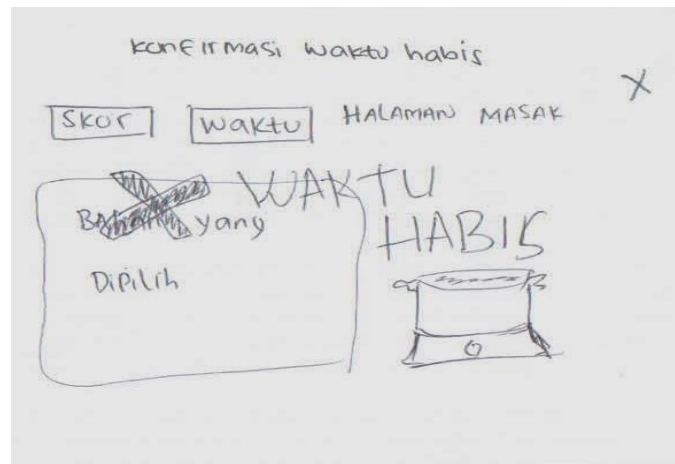 konfirmasi waktu habis
X
Skor waktu HALAMAN MASAK
WAKTU
HABIS
Bahan yang
Dipilih